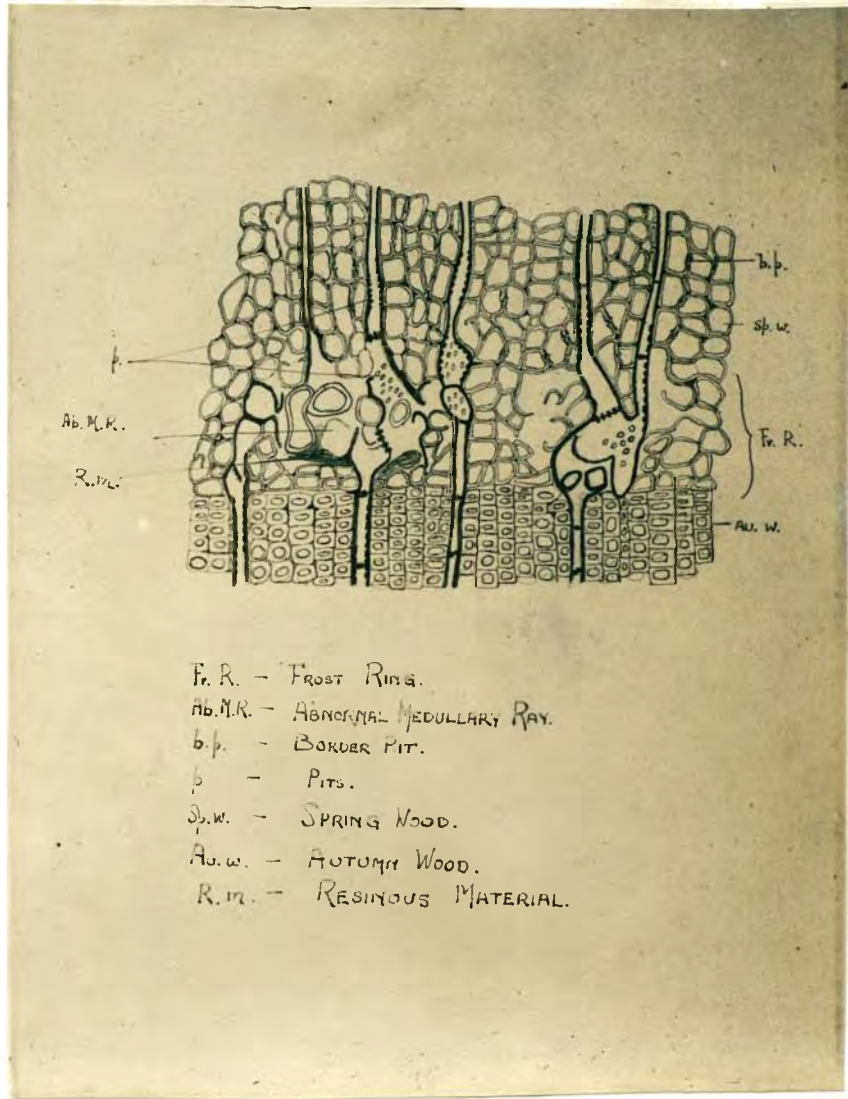 b.p.
sp. w.
p.
Ab. M. R.
Fr. R.
R. m.
Au. w.
Fr. R. - FROST RING.
Ab. M.R. - ABNORMAL MEDULLARY RAY.
b.p. - BORDER PIT.
p - PITS.
Sp.w. - SPRING WOOD.
Au.w. - AUTUMN WOOD.
R.m. - RESINOUS MATERIAL.